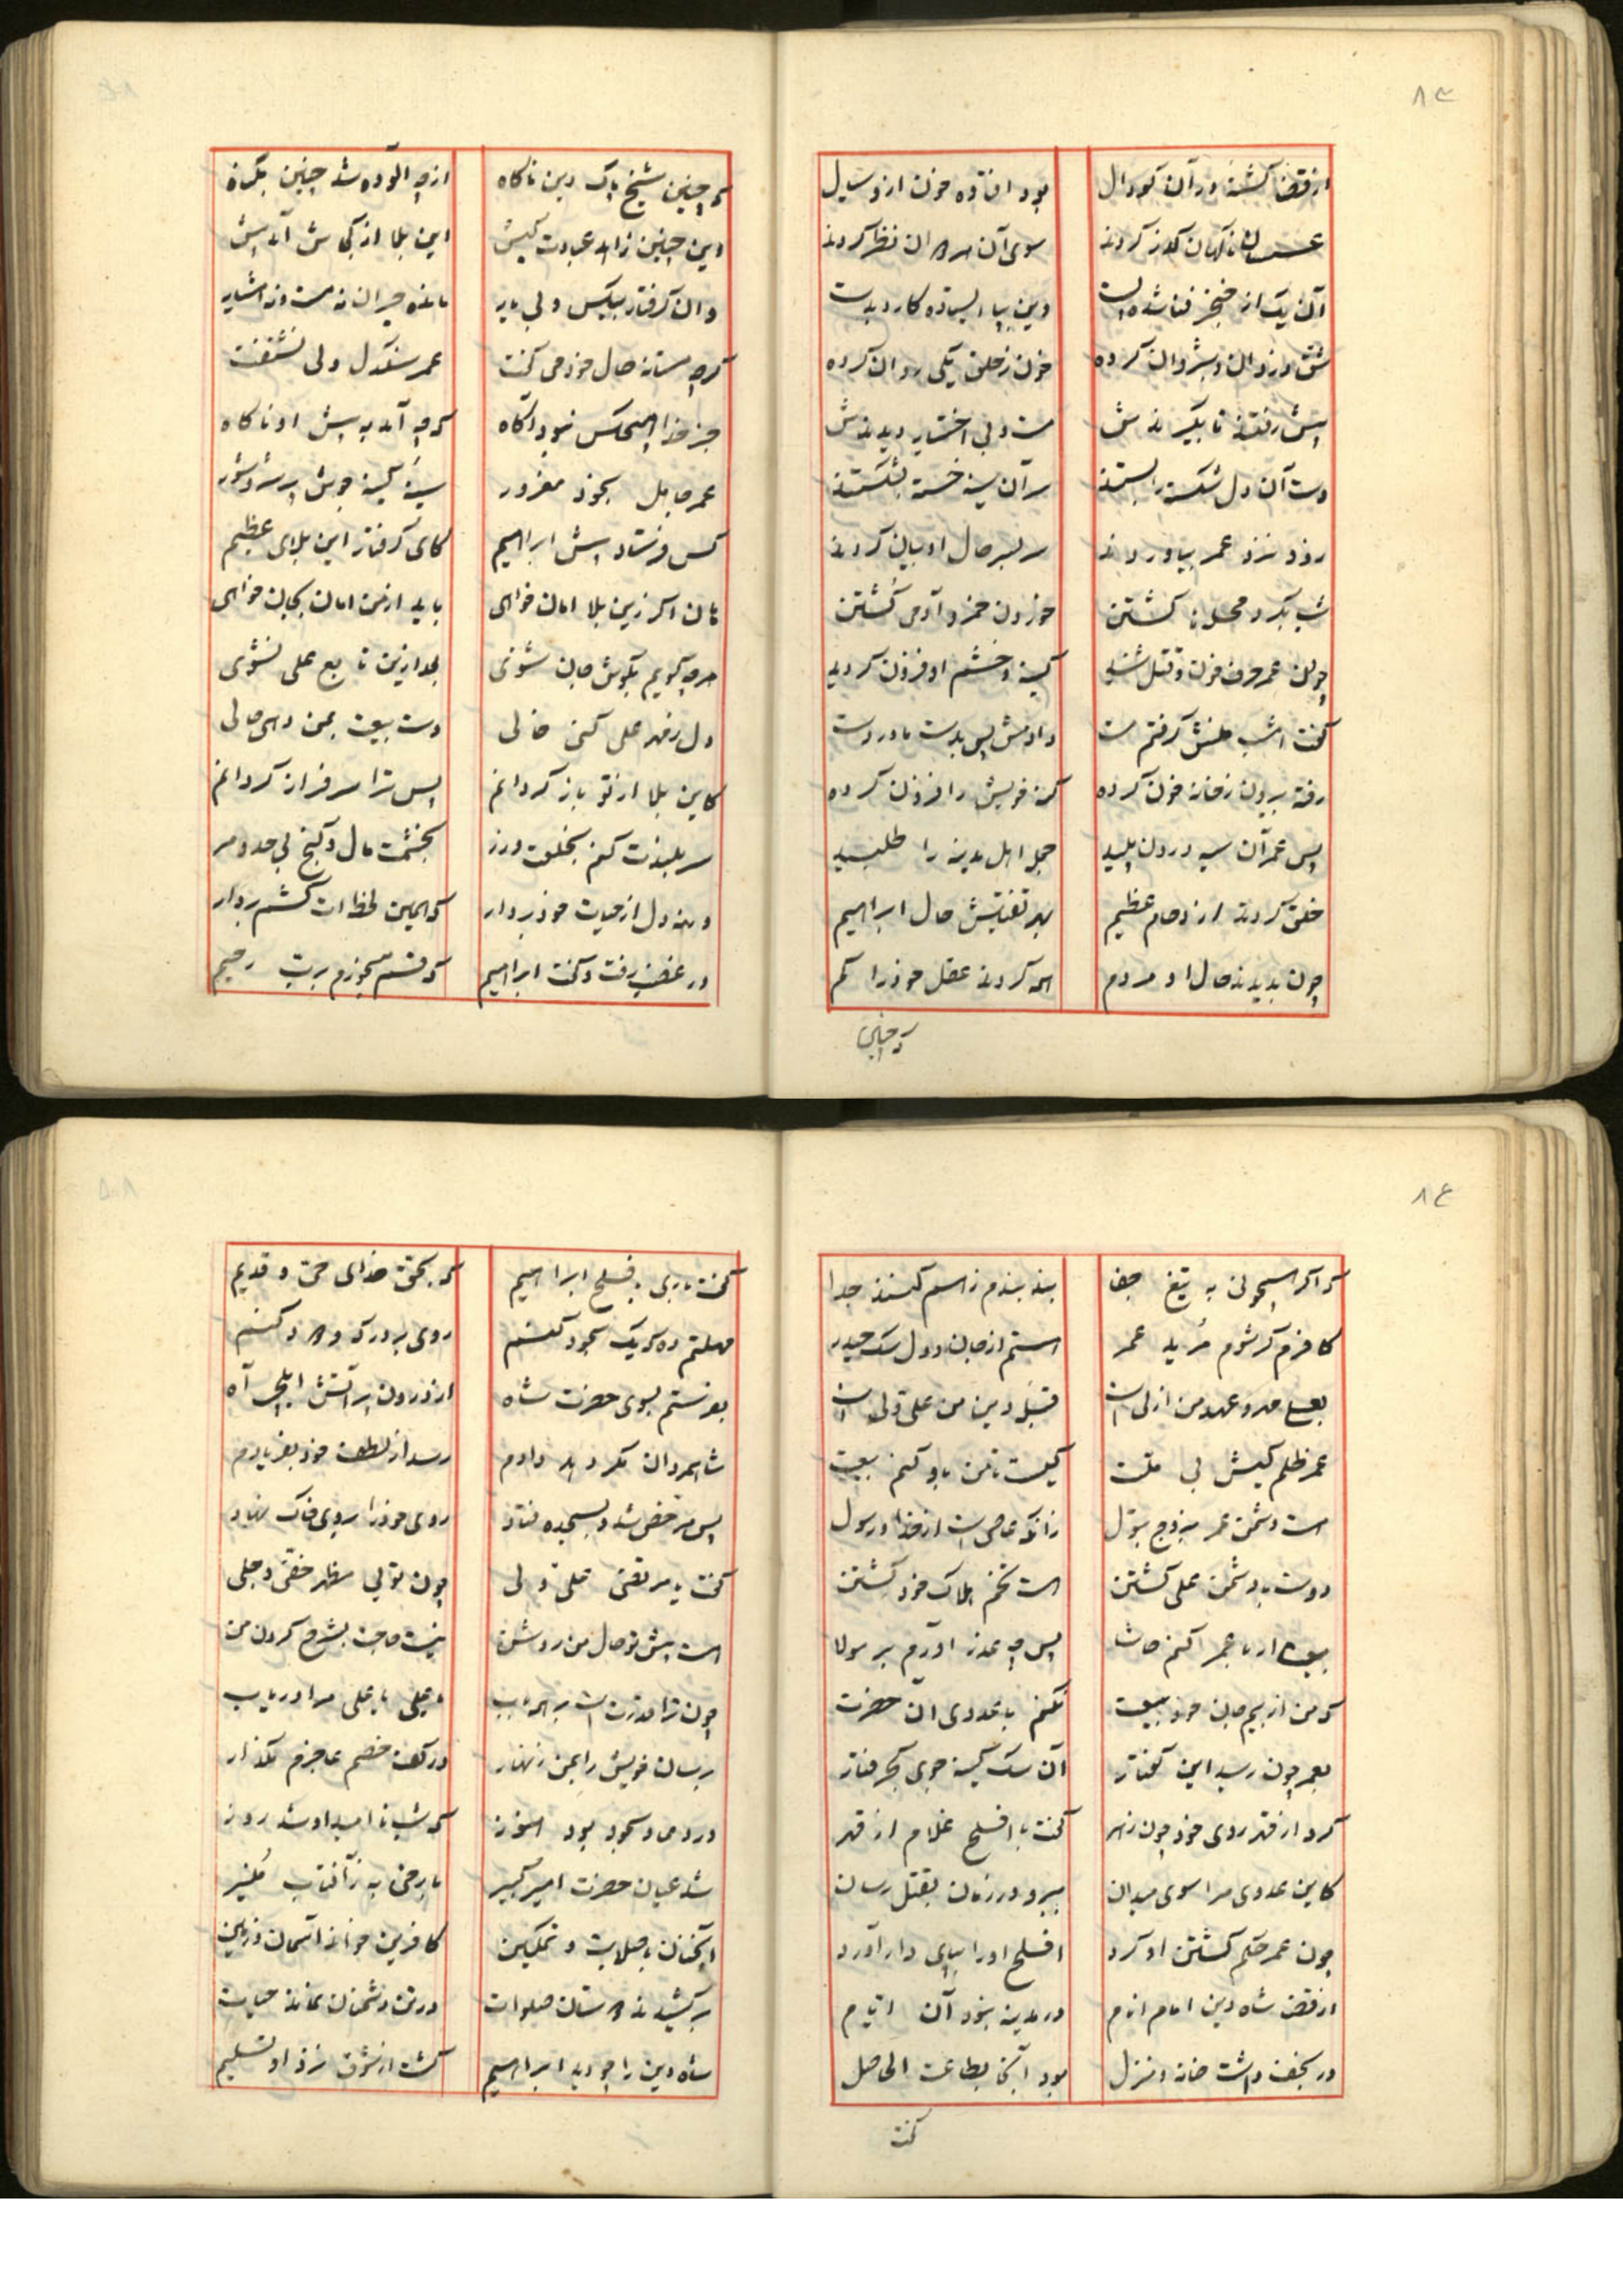 ۸۳
از قضا کشته در آن کودال بود افتاده خون ازو سیال
عسسان ناگهان گذر کردند سوی آن مردان نظر کردند
آن یک از خنجر فنا شده پست وین بپا ایستاده کارد بدست
خون ز حلق یکی روان کرده
پیش رفتند تا بگیرندش مست و بی اختیار دیدندش
دست آن دل شکسته را بستند سر آن سینه خسته بشکستند
زود نزد عمر بیاوردند سر بسر حال او بیان کردند
شب بگرد محله‌ها گشتن خوردن خمر و آدمی کشتن
چون عمر حرف خون و قتل شنید کینه و خشم او فزون گردید
گفت امشب منش گرفتم مست دادمش پس بدست مادر دست
رفته بیرون ز خانه خون کرده گنه خویش را فزون کرده
پس عمر آن سیه درون پلید جمله اهل مدینه را طلبید
خلق کردند ازدحام عظیم بهر تفتیش حال ابراهیم
چون بدیدند حال او مردم همه کردند عقل خود را گم
که چنین
که چنین شیخ پاک دین ناگاه از چه آلوده شد چنین بگناه
وین چنین زاهد عبادت کیش این بلا از کجاش آمد پیش
وان گرفتار بیکس و بی یار مانده حیران نه مست و نه هشیار
گرچه مستانه حال خود می گفت عمر سنگدل ولی نشنفت
جز خدا هیچکس نبود آگاه که چه آمد به پیش او ناگاه
عمر جاهل بخود مغرور سینه کینه جوش پر شر و شور
کس فرستاد پیش ابراهیم کای گرفتار این بلای عظیم
هان اگر زین بلا امان خواهی باید از من امان بجان خواهی
هرچه گویم بگوش جان شنوی بعد ازین تابع علی نشوی
دل ز مهر علی کنی خالی دست بیعت بمن دهی حالی
کاین بلا از تو باز گردانم پس ترا سرفراز گردانم
سربلندت کنم بخلعت و زر بخشمت مال و گنج بی حد و مر
ورنه دل از حیات خود بردار که همین لحظه‌ات کشم بر دار
در غضب رفت و گفت ابراهیم که قسم میخورم برب رحیم
۸۴
که اگر همچو نی به تیغ جفا بند بندم ز هم کنند جدا
کافرم گر شوم مرید عمر هستم از جان و دل سگ حیدر
بعلی مهر و عهد من ازلی است قبله دین من علی ولی است
عمر ظلم کیش بی ملت کیست تا من باو کنم بیعت
هست دشمن عمر بزوج بتول زانکه عاصی است از خدا و رسول
دوست با دشمن علی گشتن هست تخم هلاک خود کشتن
بیعت ار با عمر کنم حاشا پس چه عذر آورم بر مولا
که من از بیم جان خود بیعت نکنم با عدوی آن حضرت
بعمر چون رسید این گفتار آن سگ کینه جوی کجرفتار
کرد از قهر روی خود چون زهر گفت با افلح غلام از قهر
کاین عدوی مرا سوی میدان ببر و در زمان بقتل رسان
چون عمر حکم کشتن او کرد افلح او را بپای دار آورد
از قضا شاه دین امام انام در مدینه نبود آن ایام
در نجف داشت خانه و منزل بود آنجا بطاعت الحاصل
گفت
گفت باری به افلح ابراهیم که بحق خدای حی و قدیم
مهلتم ده که یک سجود کنم روی بر درگه ودود کنم
بفرستم بسوی حضرت شاه از درون پر آتش ایلچی آه
شاه مردان مگر دهد دادم رسد از لطف خود بفریادم
پس مرخص شد و بسجده فتاد روی خود را بروی خاک نهاد
گفت یا مرتضی علی ولی چون تویی مظهر خفی و جلی
هست پیش تو حال من روشن نیست حاجت بشرح کردن من
چون ترا قدرت است بر هر باب یا علی یا علی مرا دریاب
برسان خویش را بمن زنهار در کف خصم عاجزم مگذار
در دعا و سجود بود هنوز که شب نا امید او شد روز
شد عیان حضرت امیر کبیر با رخی به ز آفتاب منیر
آنچنان با صلابت و تمکین کافرین خواند آسمان و زمین
برکشیدند دوستان صلوات در تن دشمنان نماند حیات
شاه دین را چو دید ابراهیم گشت از شوق نزد او تسلیم